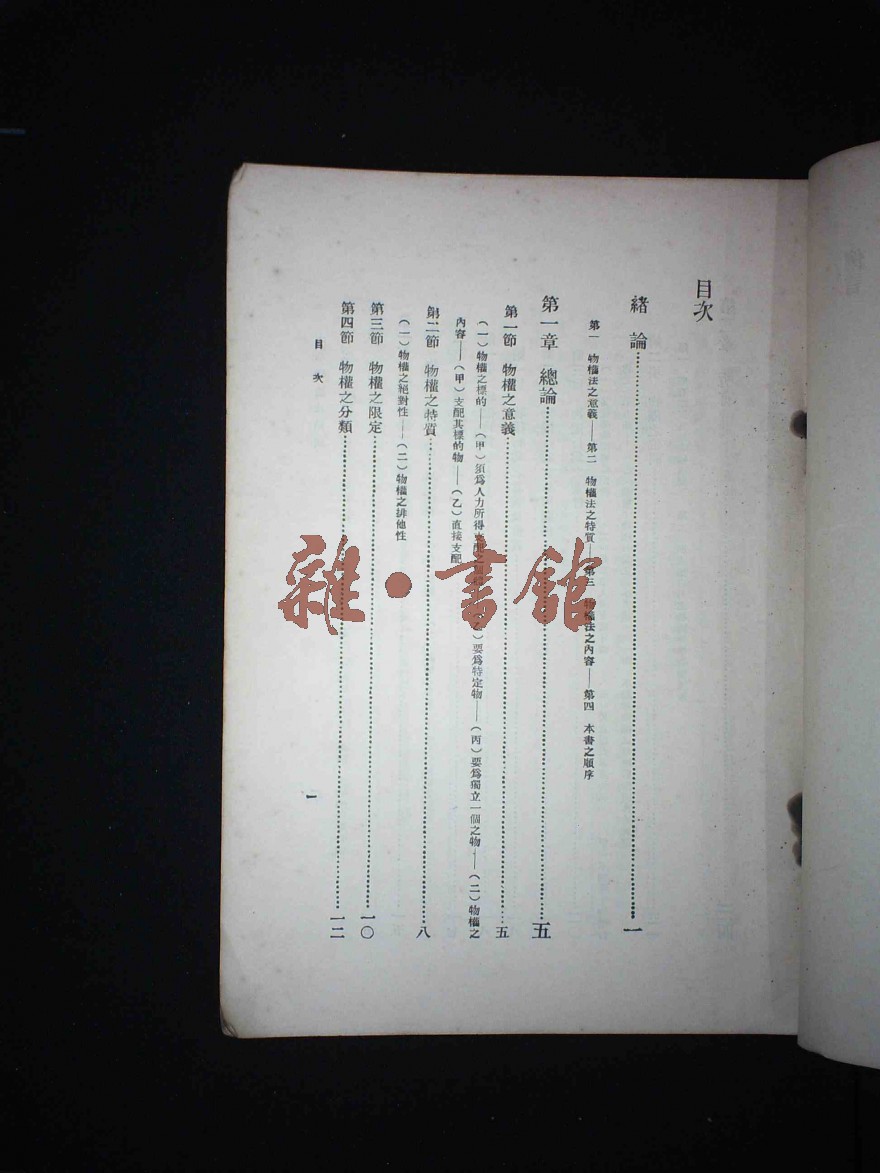 目次
緒論……一
第一 物權法之意義——第二 物權法之特質——第三 物權法之內容——第四 本書之順序
第一章 總論……五
第一節 物權之意義……五
(一)物權之標的——(甲)須爲人力所得支配 要爲特定物——(丙)要爲獨立一個之物——(二)物權之
內容——(甲)支配其標的物——(乙)直接支配
第二節 物權之特質……八
(一)物權之絕對性——(二)物權之排他性
第三節 物權之限定……一〇
第四節 物權之分類……一二
目次
一
雜·書館